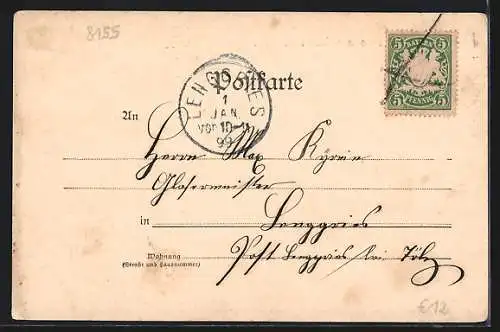 8155
Postkarte
LENGGRIES
1
JAN
VOR 10-11
99
BAYERN
5 5
5 PFENNIG 5
An
Herrn Max Kyrein
Glasermeister
in Lenggries
Wohnung
(Straße und Hausnummer)
Post Lenggries bei Tölz
€12